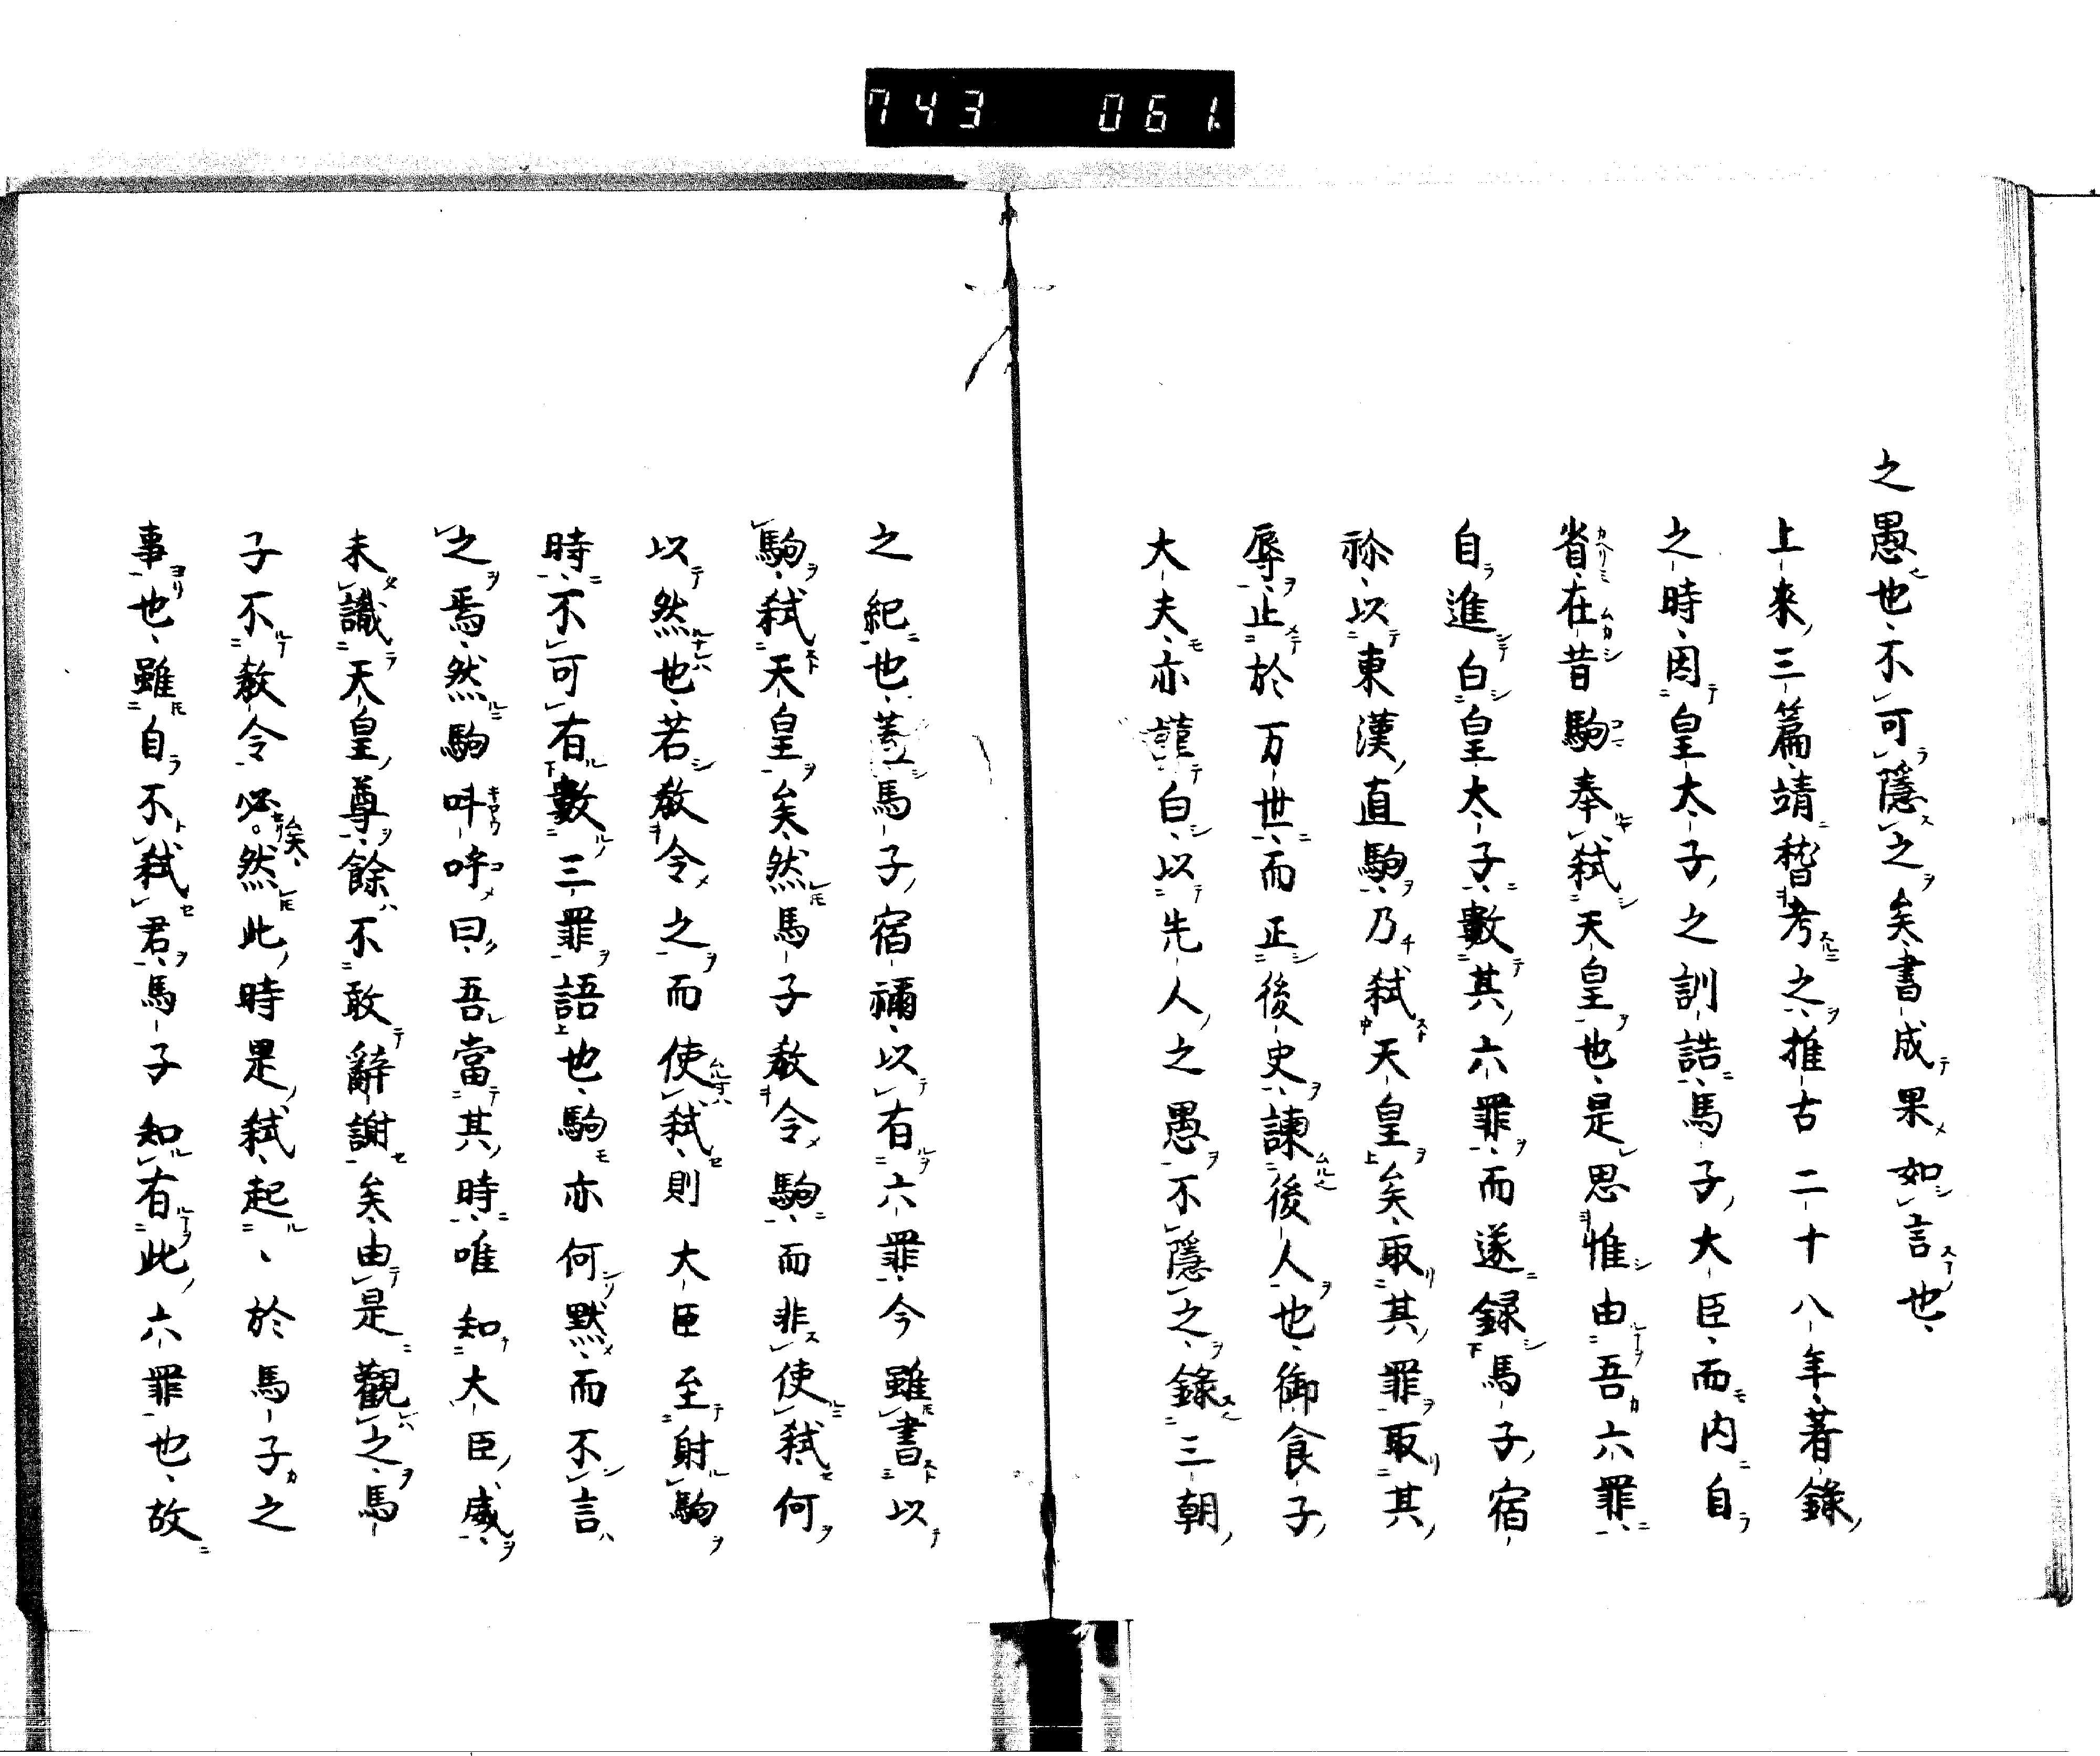 743 061
之愚也、不可隱之矣、書成果如言也、
上來三篇、靖稽考之、推古二十八年、著錄
之時、因皇太子之訓誥、馬子大臣、而内自
省、在昔駒奉弑天皇也、是思惟由吾六罪、
自進白皇太子、數其六罪、而遂録馬子宿
祢、以東漢直駒、乃弑天皇矣、取其罪取其
辱、止於万世、而正後史、諫後人也、御食子
大夫、亦謹白、以先人之愚、不隱之、錄三朝
之紀也、蓋馬子宿禰、以有六罪、今雖書以
駒弑天皇矣、然馬子教令駒、而非使弑、何
以然也、若教令之而使弑、則大臣至射駒
時、不可有數三罪語也、駒亦何默而不言
之焉、然駒叫呼曰、吾當其時、唯知大臣威、
未識天皇尊、餘不敢辭謝矣、由是觀之、馬
子不教令必矣、然此時是弑起、於馬子之
事也、雖自不弑君、馬子知有此六罪也、故